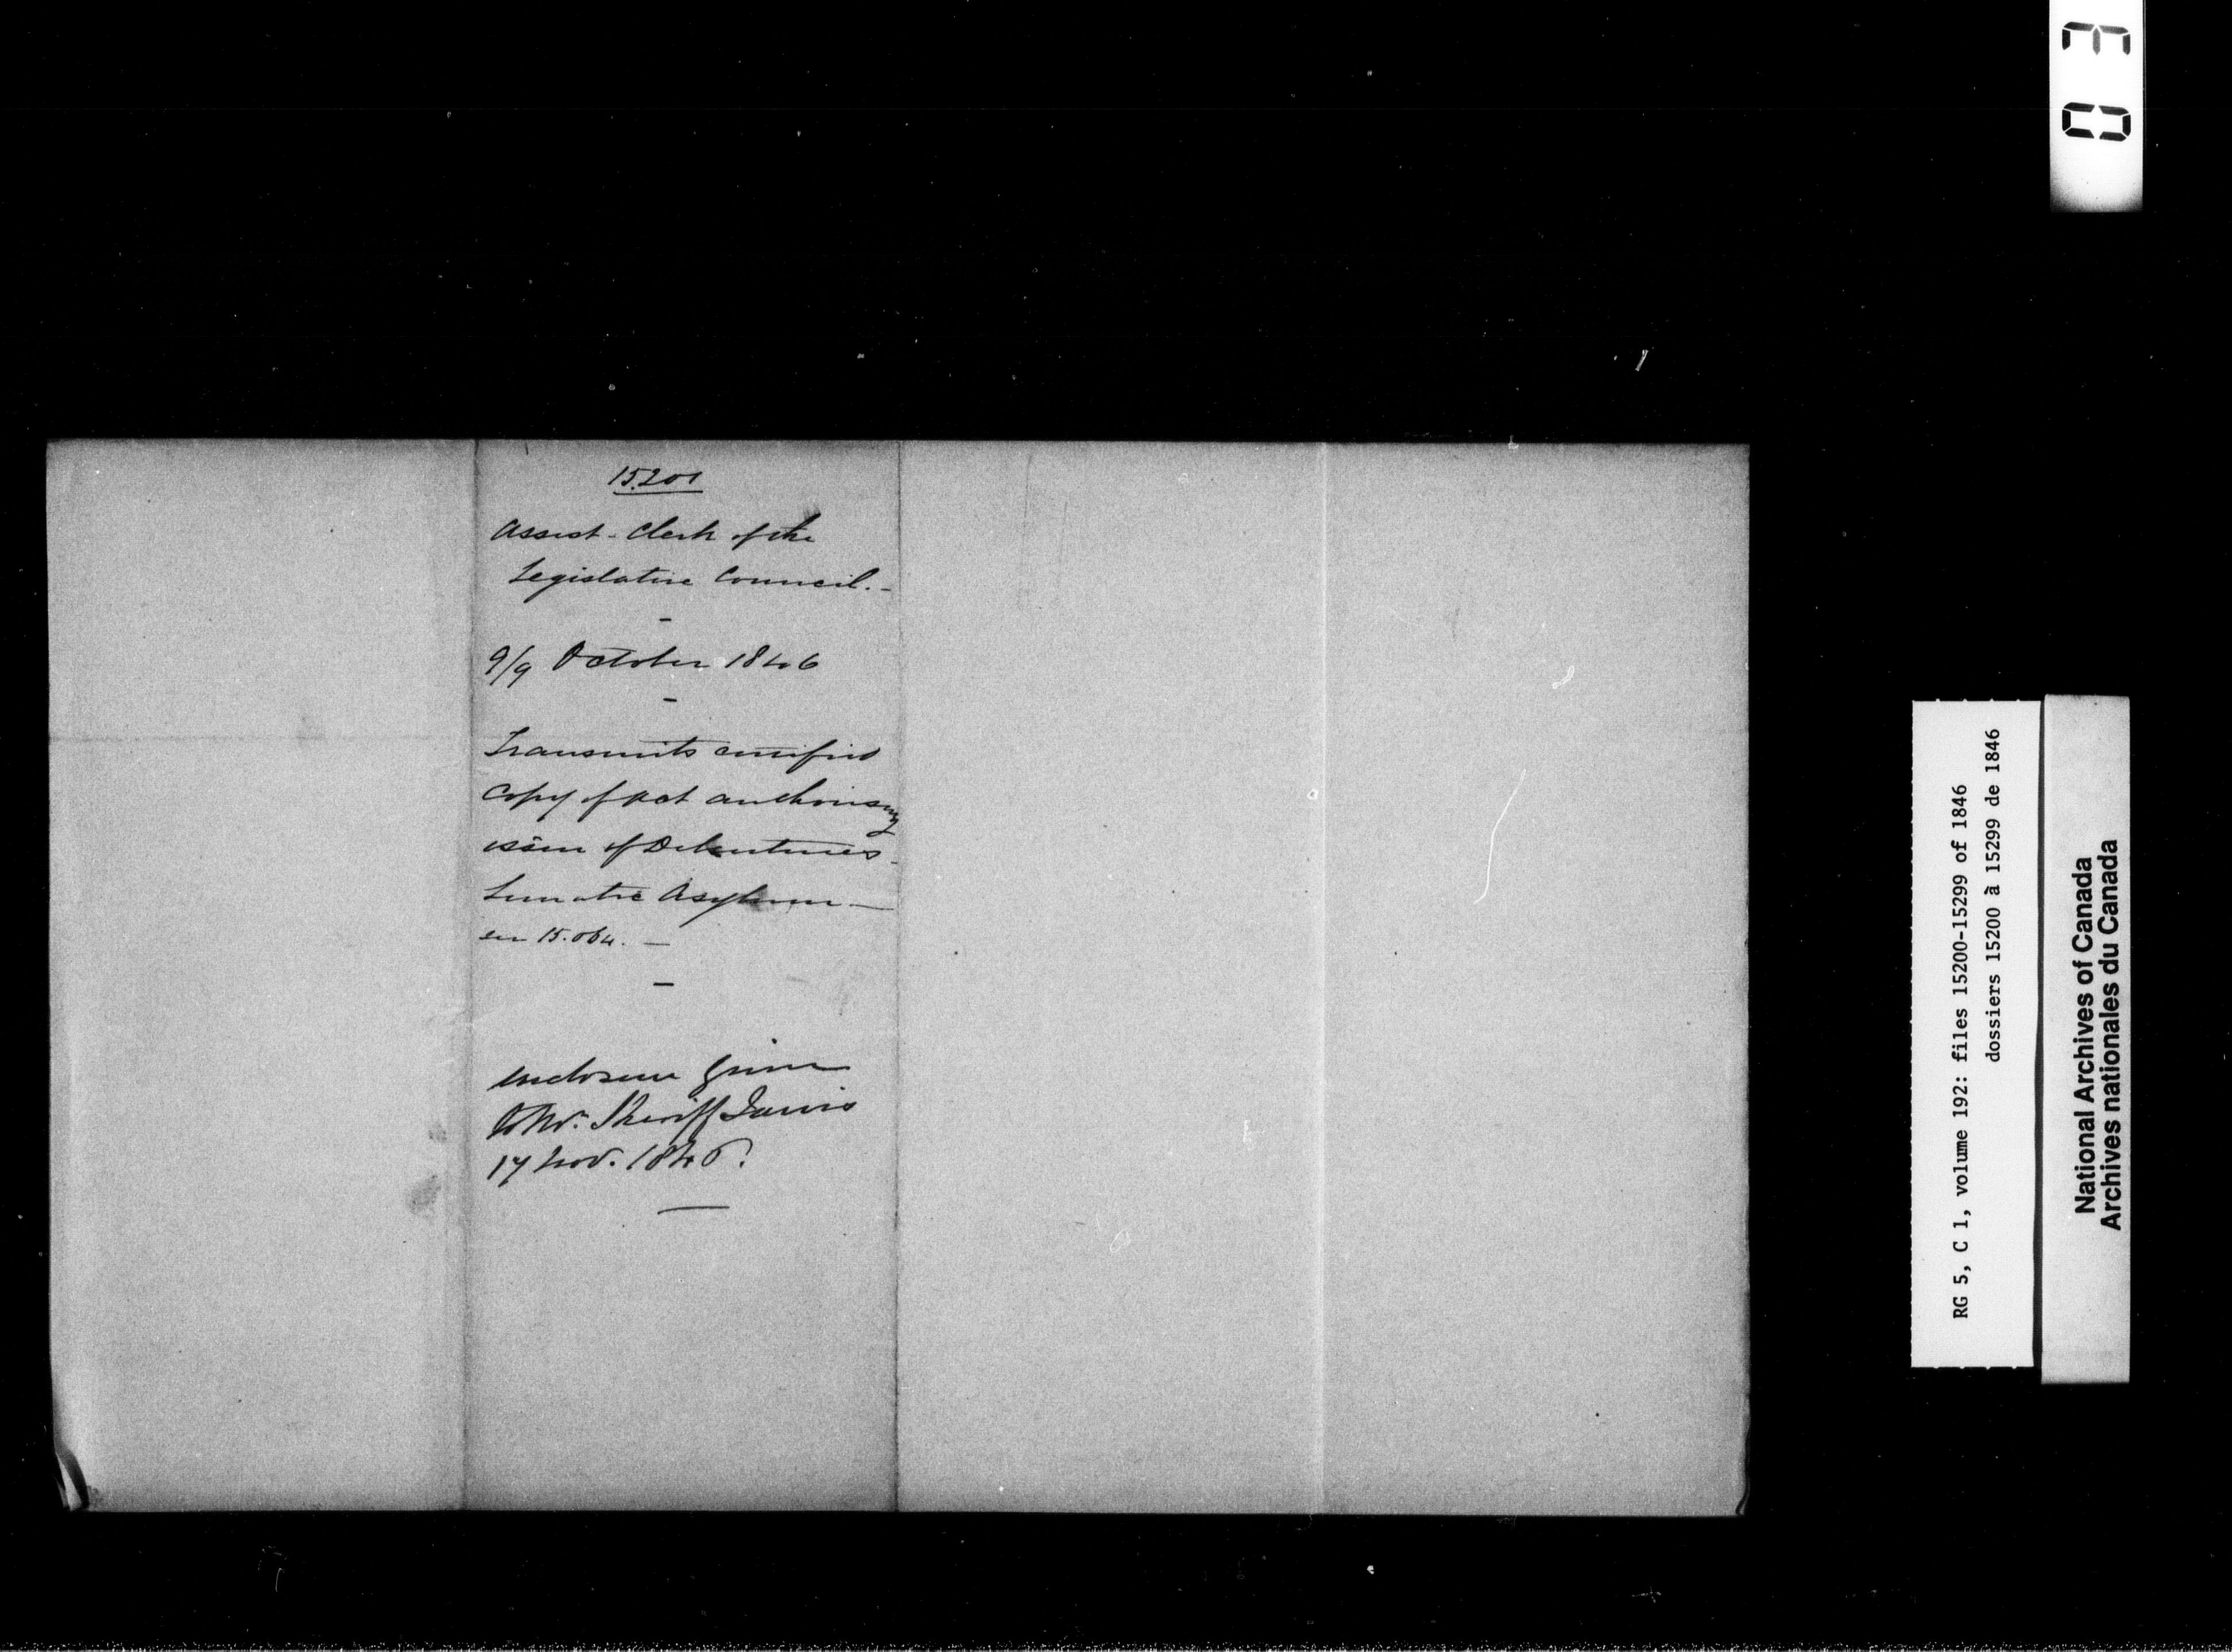 15.201
Assist. Clerk of the
Legislative Council. -
-
9/9 October 1846
-
Transmits certified
Copy of Act authorising
issue of Debentures -
Lunatic Asylum -
see 15.064. -
-
enclosure given
to Mr. Sheriff Jarvis
17 Nov. 1846.
RG 5, C 1, volume 192: files 15200-15299 of 1846
dossiers 15200 à 15299 de 1846
National Archives of Canada
Archives nationales du Canada